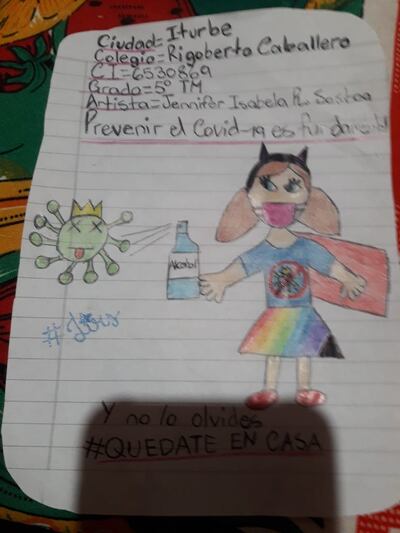 Ciudad= Iturbe
Colegio= Rigoberto Caballero
CI=6530869
Grado=5° TM
Artista=Jennifer Isabela R. Sostoa
Prevenir el Covid-19 es fundamental
Alcohol
Y no lo olvides
#QUEDATE EN CASA